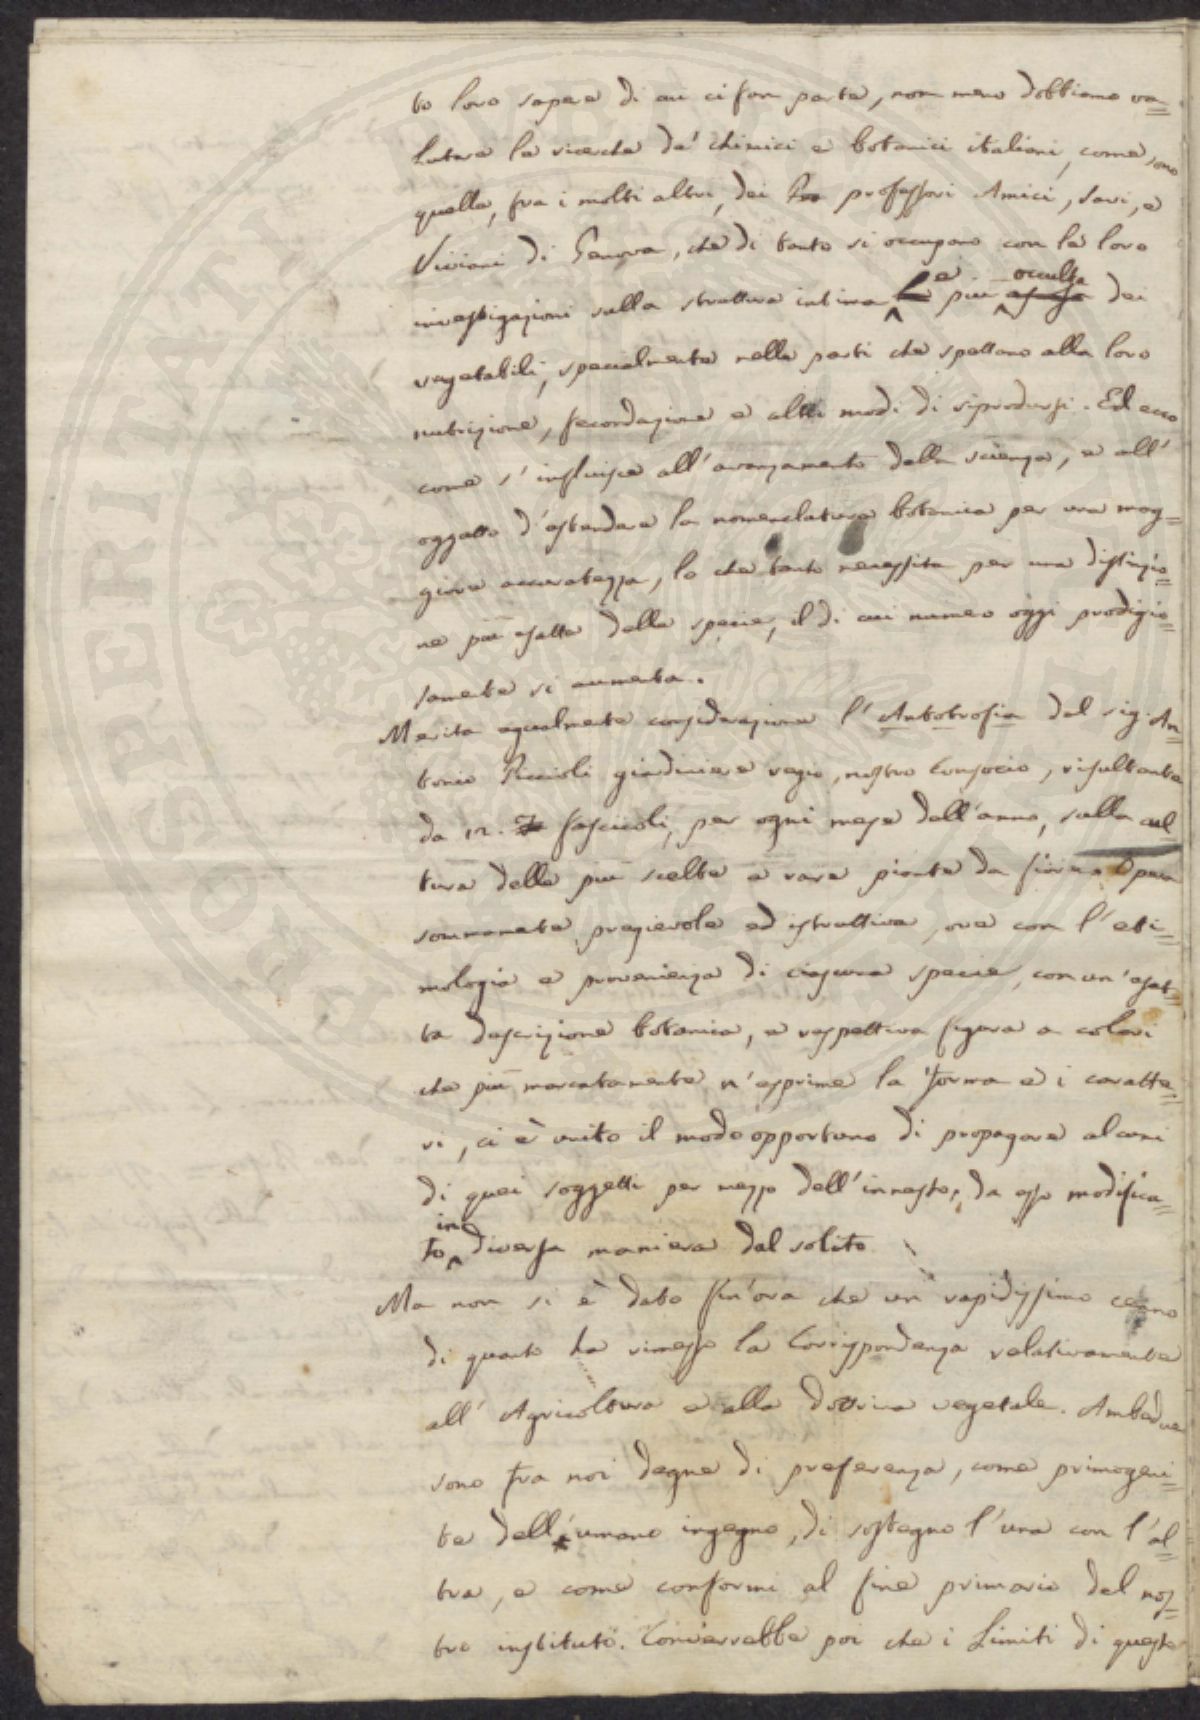 to loro sapere di cui ci fan parte, non meno dobbiamo va=
lutare le ricerche de' Chimici e botanici italiani, come sono
quelle, fra i molti altri, dei professori Amici, Savi, e
Viviani di Genova, che di tanto si occupano con le loro
investigazioni sulla struttura intima e più occulta dei
vegetabili, specialmente nelle parti che spettano alla loro
nutrizione, fecondazione e altri modi di riprodursi. Ed ecco
come s'influisce all'avanzamento della scienza, e all'
oggetto d'estendere la nomenclatura botanica per una mag=
giore accuratezza, lo che tanto necessita per una distinzio=
ne più esatta delle specie, il di cui numero oggi prodigio=
samente si aumenta.
Merita egualmente considerazione l'Antotrofia del sig. An=
tonio Piccioli giardiniere regio, nostro Consocio, risultante
da 12. fascicoli, per ogni mese dell'anno, sulla cul=
tura delle più scelte e rare piante da fiore. Opera
sommamente pregievole ed istruttiva, ove con l'eti=
mologia e provenienza di ciascuna specie, con un'esat=
ta descrizione botanica, e respettiva figura a colori
che più marcatamente n'esprime la forma e i caratte=
ri, ci è unito il modo opportuno di propagare alcuni
di quei soggetti per mezzo dell'innesto, da esso modifica=
to in diversa maniera dal solito
Ma non si è dato fin'ora che un rapidissimo cenno
di quanto ha rimesso la Corrispondenza relativamente
all'Agricoltura e alla dottrina vegetale. Ambedue
sono fra noi degne di preferenza, come primogeni=
te dell'umano ingegno, di sostegno l'una con l'al=
tra, e come conformi al fine primario del nos=
tro instituto. Converrebbe poi che i Limiti di queste
PROSPERITATI PUBLICAE